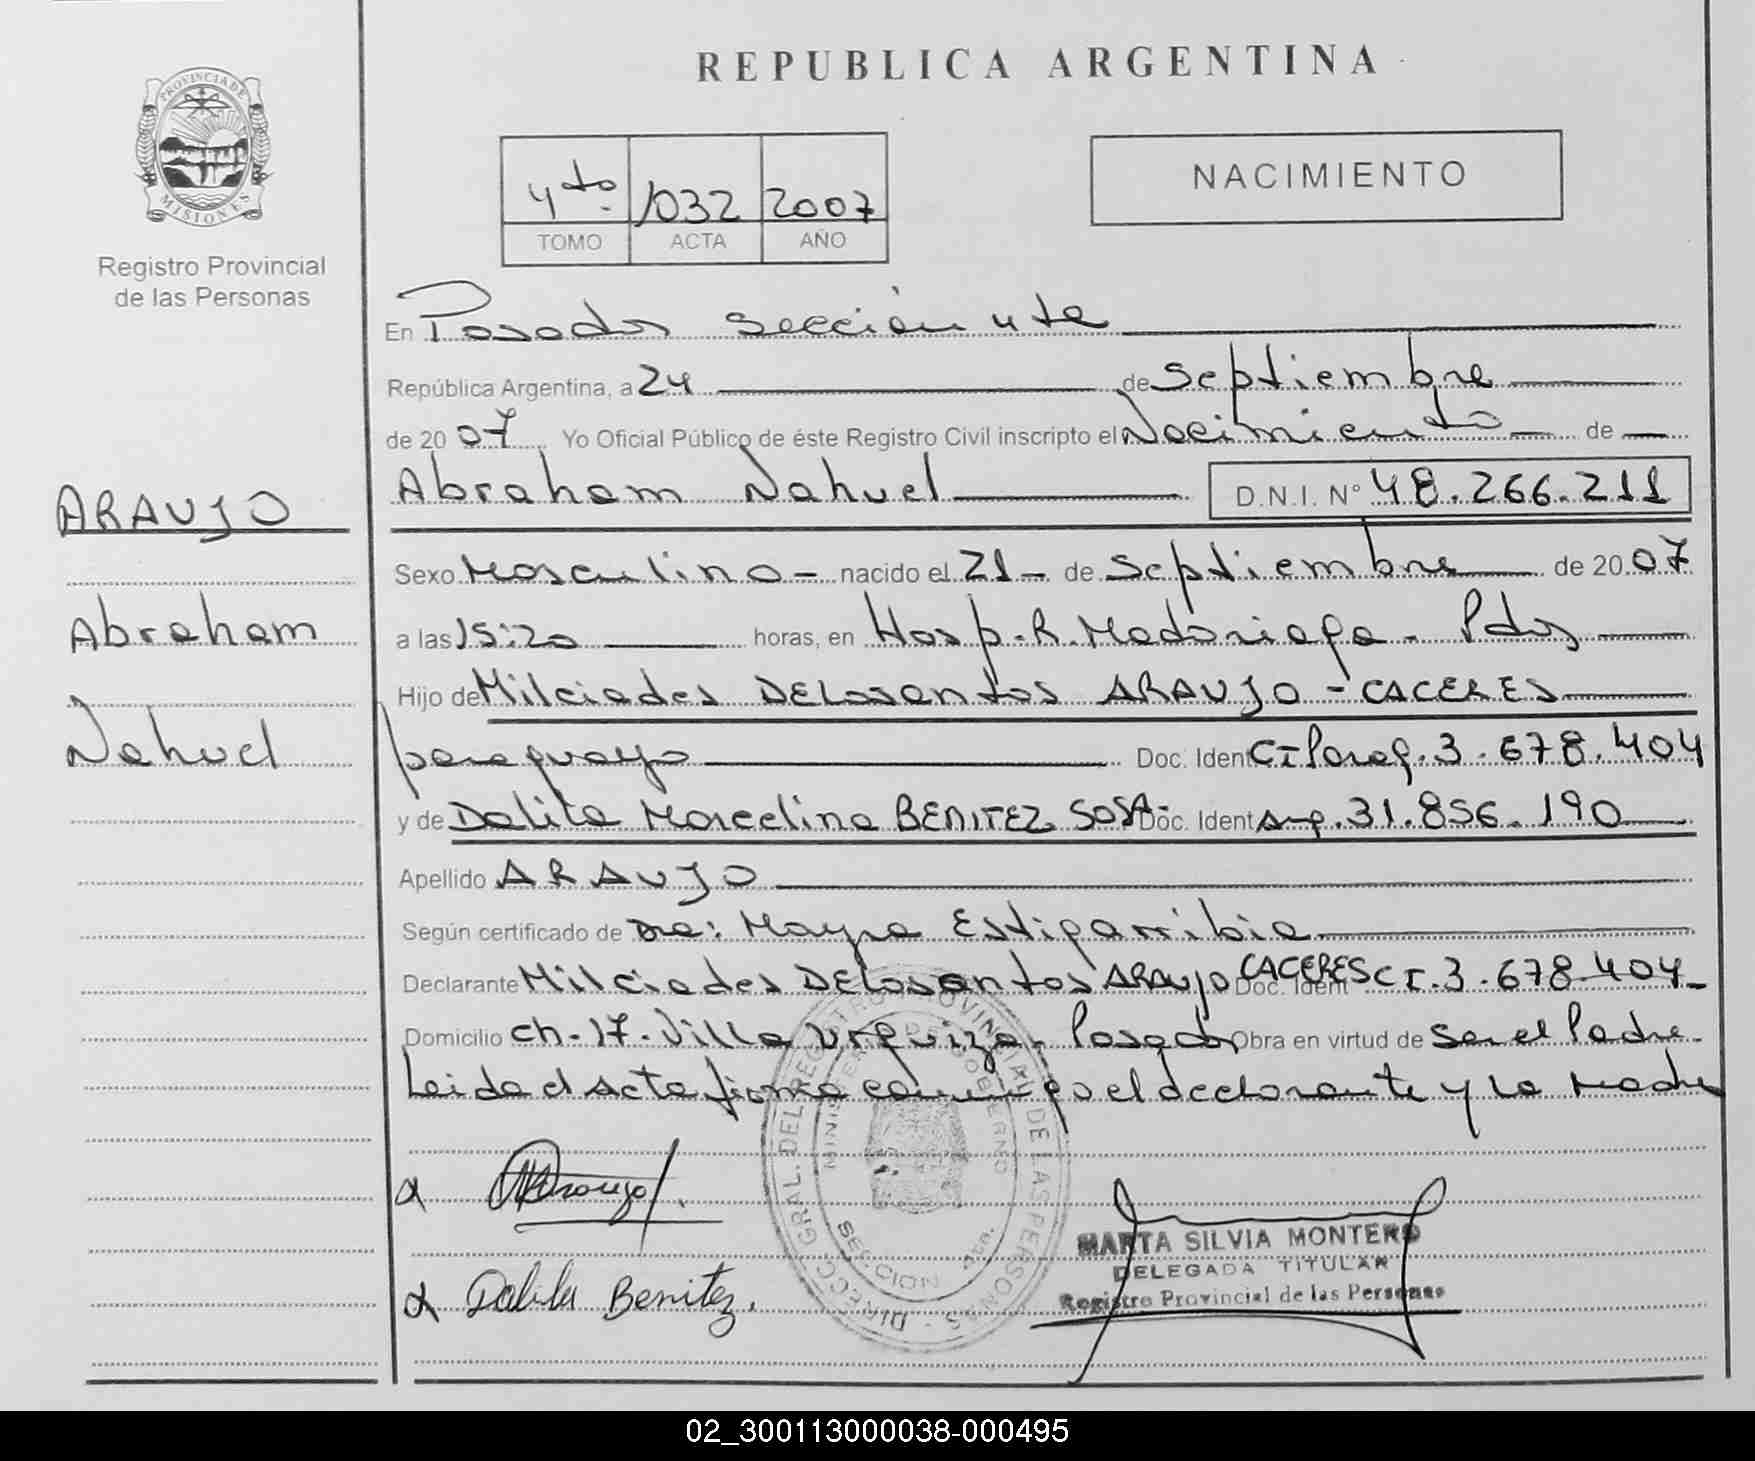 PROVINCIA DE
MISIONES
Registro Provincial
de las Personas
ARAUJO
Abraham
Nahuel
REPUBLICA ARGENTINA
4to 1032 2007
TOMO ACTA AÑO
NACIMIENTO
En Posadas Sección 4ta
República Argentina, a 24 de Septiembre
de 20 07 Yo Oficial Público de éste Registro Civil inscripto el Nacimiento de
Abraham Nahuel D.N.I. Nº 48.266.211
Sexo Masculino - nacido el 21 - de Septiembre de 20 07
a las 15:20 horas, en Hosp. R. Madariaga - Pdas
Hijo de Milciades DELosantos ARAUJO - CACERES
paraguayo Doc. Ident CI Parag. 3.678.404
y de Dalila Marcelina BENITEZ SOSA - Doc. Ident Arg. 31.856.190
Apellido ARAUJO
Según certificado de Dra: Mayra Estigarribia
Declarante Milciades DELosantos ARAUJO CACERES Doc. Ident CI. 3.678.404 -
Domicilio Ch. 17. Villa Urquiza - Posadas Obra en virtud de Ser el Padre -
Leida el Acta firma conmigo el declarante y la madre
MARTA SILVIA MONTERO
DELEGADA TITULAR
Registro Provincial de las Personas
Dalila Benitez.
DIRECC. GRAL. DEL REGISTRO PROVINCIAL DE LAS PERSONAS
MINISTERIO DE GOBIERNO
SECCION 4ta.
02_300113000038-000495